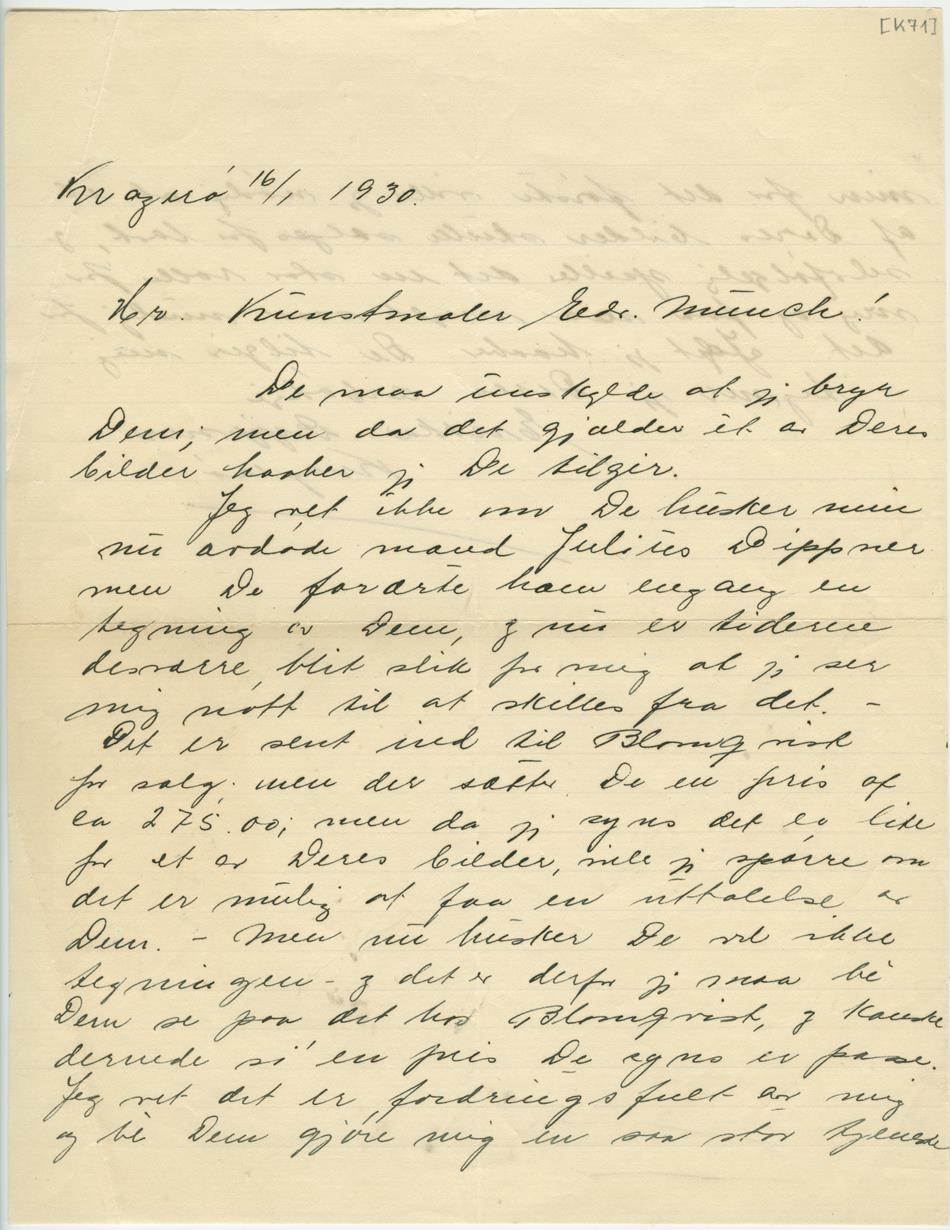 [K71]
Kragerø 16/1 1930.
Hr. Kunstmaler Edv. Munch!
De maa unskylde at jg bryr
Dem; men da det gjælder et av Deres
bilder haaber jg De tilgir.
Jeg vet ikke om De husker min
nu avdøde mand Julius Dippner
men De forærte ham engang en
tegning av Dem, og nu er tiderne
desværre, blit slik for mig at jg ser
mig nøtt til at skilles fra det. –
Det er sent ind til Blomqvist
for salg; men der sætter De en pris af
ca 275.00; men da jg syns det er lite
for et av Deres bilder, vilde jg spørre om
det er mulig at faa en uttalelse av
Dem. – Men nu husker De vel ikke
tegningen – og det er derfor jg maa be
Dem se paa det hos Blomqvist, og kanske
dernede si en pris De syns er passe.
Jeg vet det er fordringsfult av mig
og be Dem gjøre mig en saa stor tjeneste